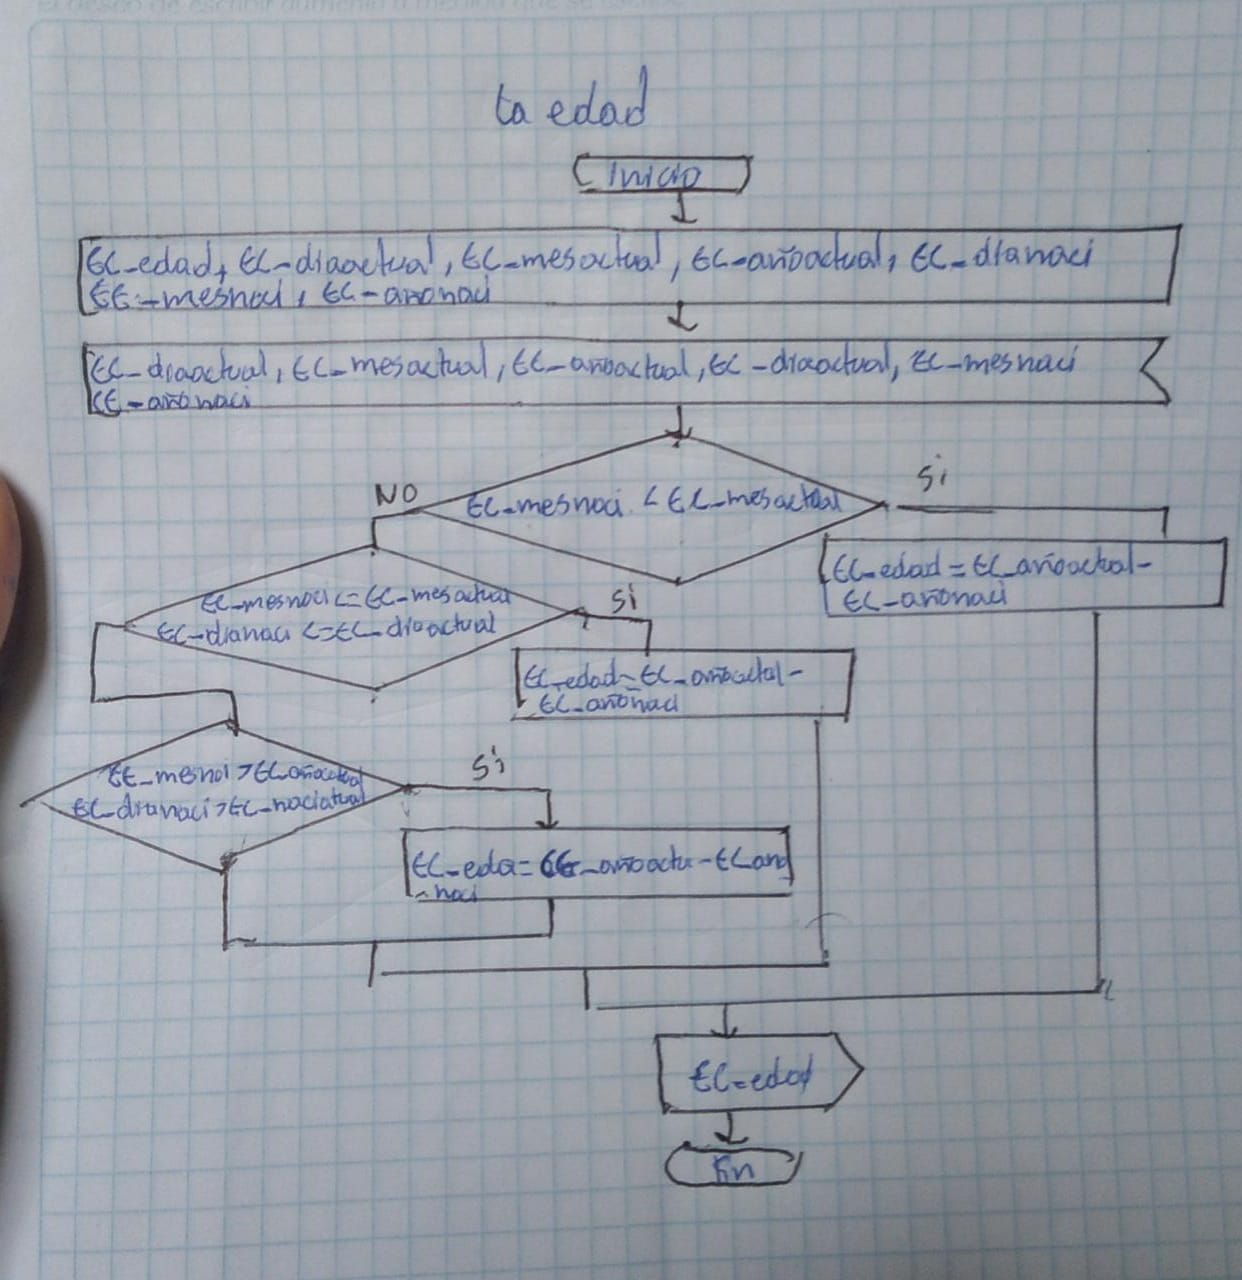 la edad
Inicio
EC-edad, EC-diaactual, EC-mesactual, EC-añoactual, EC-dianaci
EC-mesnaci, EC-añonaci
EC-diaactual, EC-mesactual, EC-añoactual, EC-diaactual, EC-mesnaci
EC-añonaci
NO
EC-mesnaci < EC-mesactual
Si
EC-edad = EC-añoactual-
EC-añonaci
EC-mesnaci <= EC-mesactual
EC-dianaci <= EC-diaactual
Si
EC-edad = EC-añoactal-
EC-añonaci
EC-mesnai > EC añoactual
EC-dianaci > EC-naciatual
Si
EC-eda = EC-añoactu-EC
-naci
EC-edad
Fin